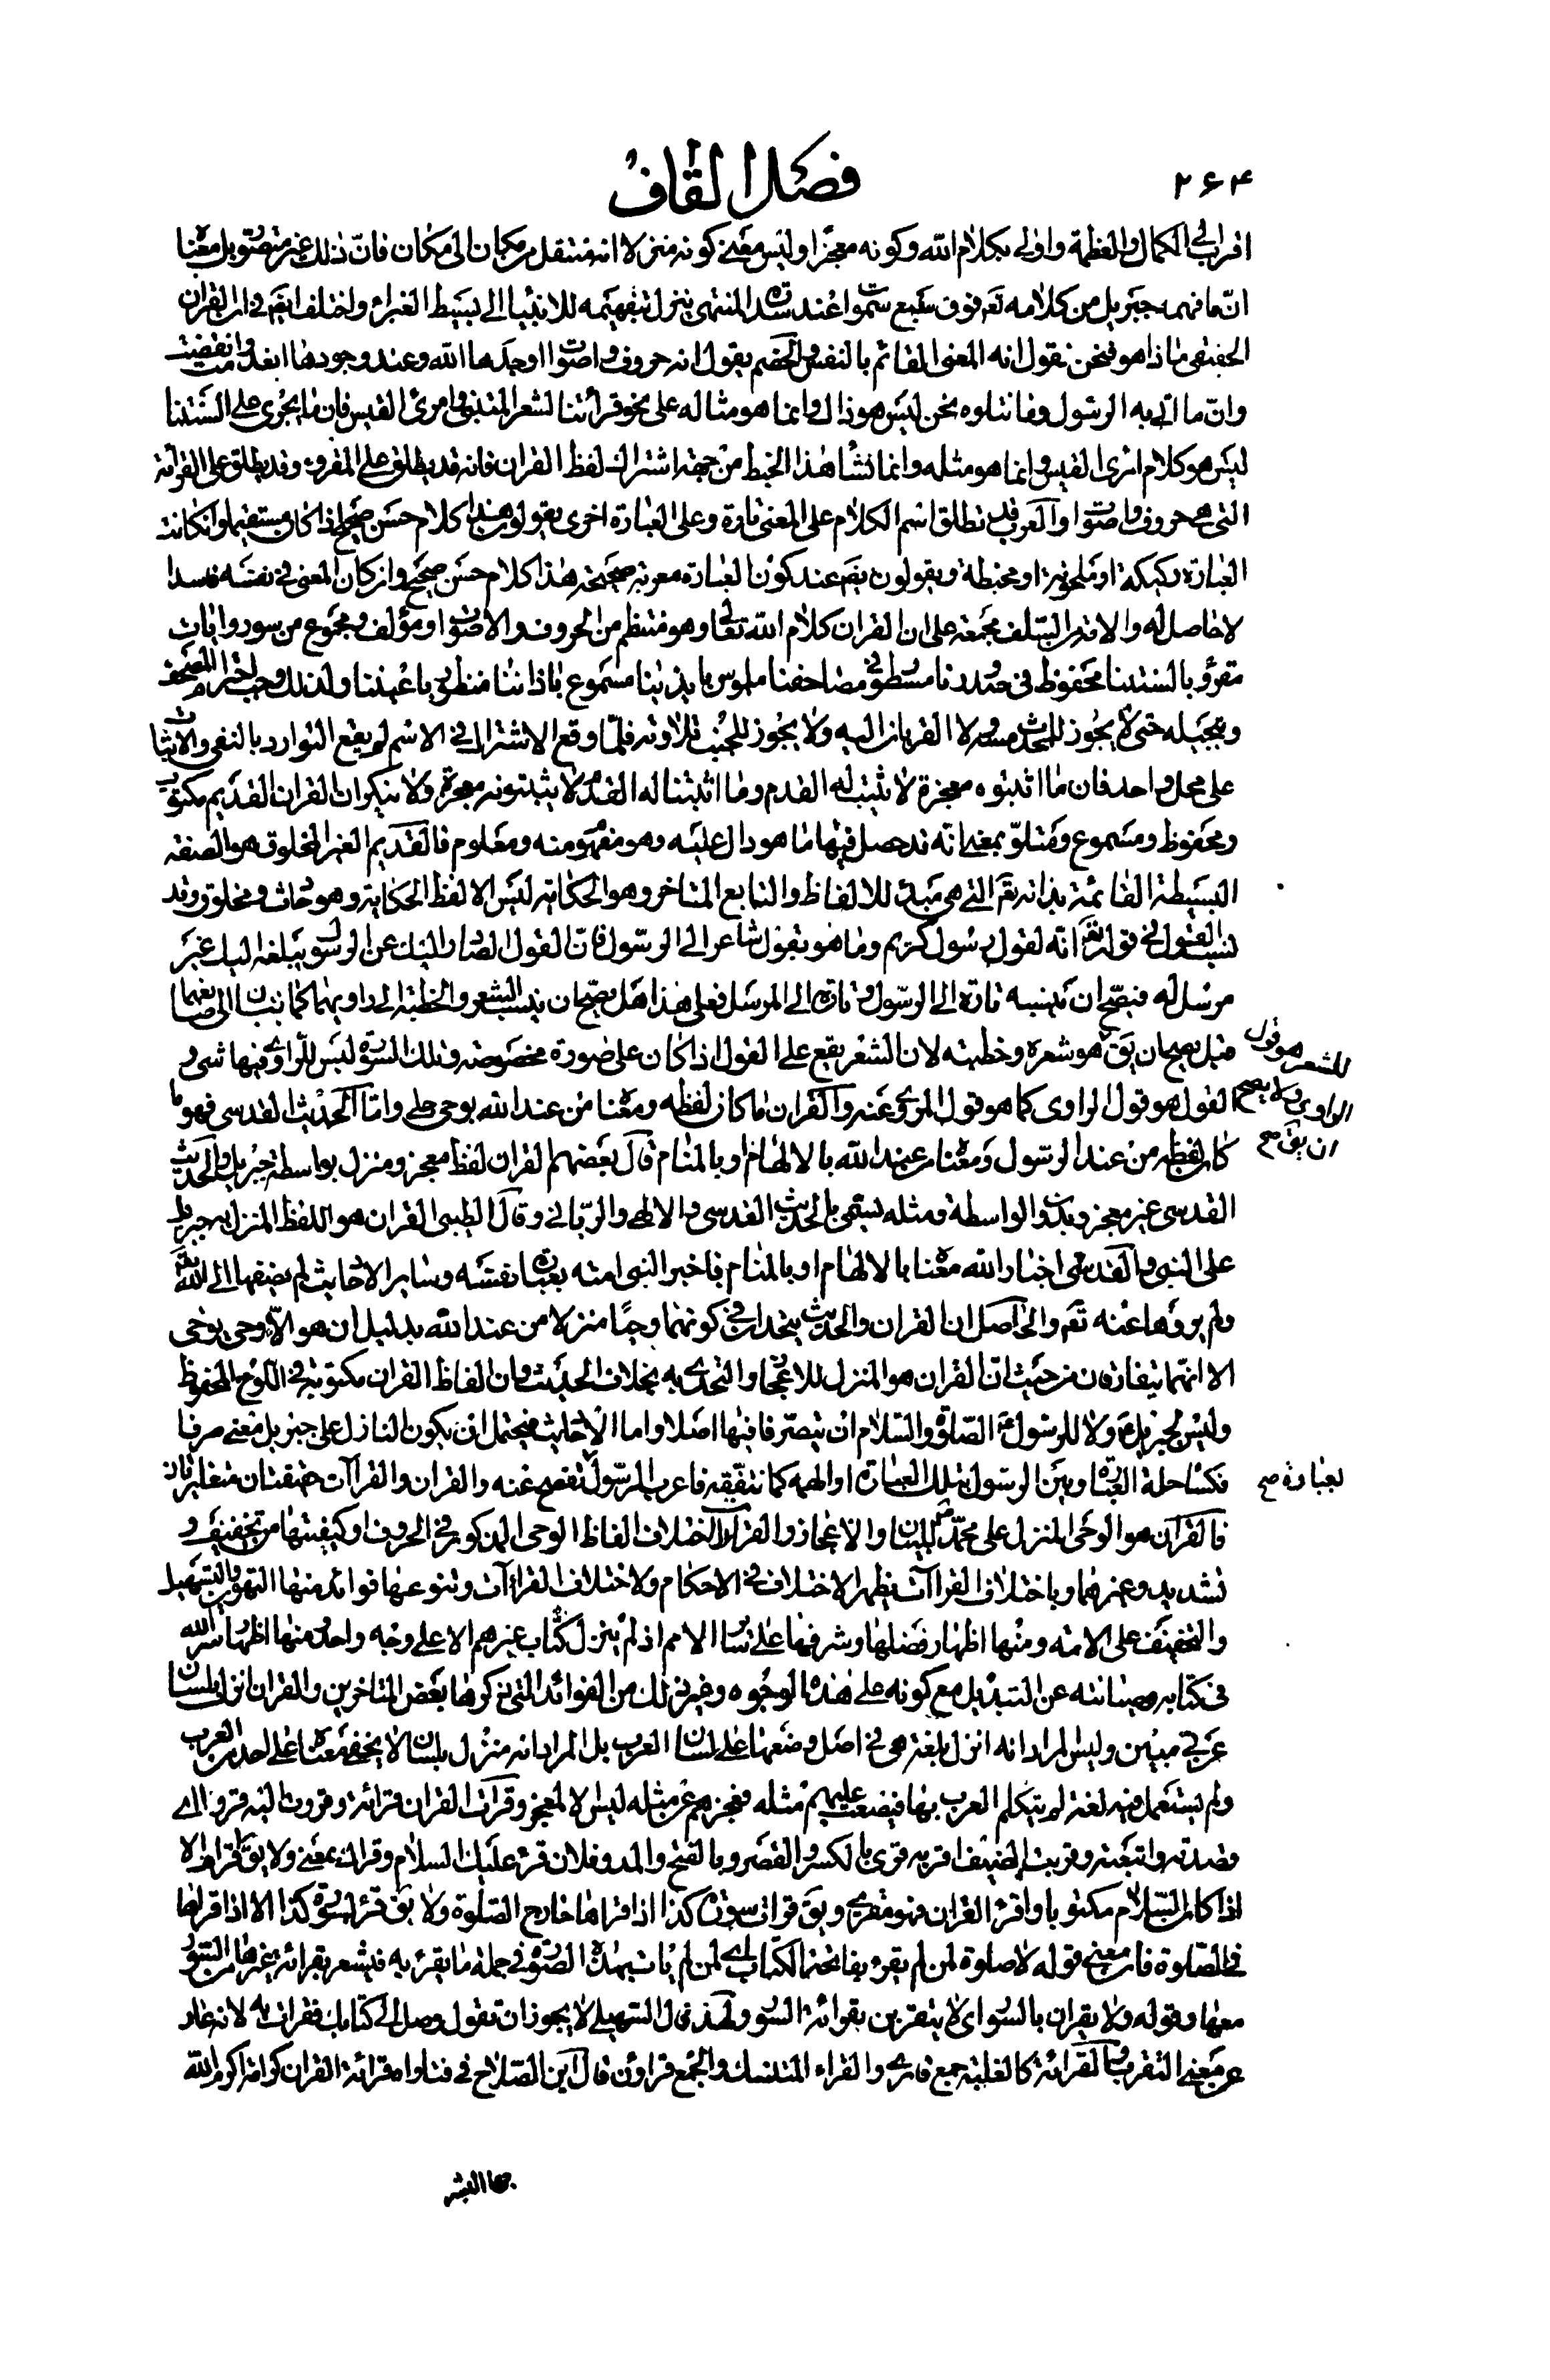 ٢٦٤
فصل القاف
اقرب الى الكمال والعظمة واولى بكلام الله وكونه معجزا وليس معنى كونه منزلا انه منتقل من مكان الى مكان فان ذلك غير متصور بل معناه
ان ما فهمه جبريل من كلامه تع فوق سبع سموات عند سدرة المنتهى ينزل بتفهيمه للانبياء الى بسيط الغبراء واختلف ايض في ان القران
الحقيقي ماذا هو فنحن نقول انه المعنى القائم بالنفس والخصم يقول انه حروف واصوات اوجدها الله وعند وجودها انعدمت وانقضت
وان ما اتى به الرسول وما نتلوه نحن ليس هو ذاك وانما هو مثاله على نحو قرائتنا لشعر المتنبي وامرئ القيس فان ما يجرى على السنتنا
ليس هو كلام امرئ القيس وانما هو مثله وانما نشا هذا الخبط من جهة اشتراك لفظ القران فانه قد يطلق على المقروء وقد يطلق على القرائة
التي هي حروف واصوات والعرب قد تطلق اسم الكلام على المعنى تارة وعلى العبارة اخرى يقولون هذا كلام حسن صحيح اذا كان مستقيما وان كانت
العبارة ركيكة او ملحونة او مختبطة ويقولون ايض عند كون العبارة معربة صحيحة هذا كلام حسن صحيح وان كان المعنى في نفسه فاسدا
لا حاصل له والامة من السلف مجمعة على ان القران كلام الله تعالى وهو منتظم من الحروف والاصوات ومؤلف ومجموع من سور وايات
مقرؤ بالسنتنا محفوظ في صدورنا مسطور في مصاحفنا ملموس بايدينا مسموع باذاننا منظور باعيننا ولذلك وجب احترام المصحف
وتبجيله حتى لا يجوز للمحدث مسه ولا القربان اليه ولا يجوز للجنب تلاوته فلما وقع الاشتراك في الاسم لم يقع التوارد بالنفي والاثبات
على محل واحد فان ما اثبتوه معجزة لا نثبت له القدم وما اثبتنا له القدم لا يثبتونه معجزة ولا ننكر ان القران القديم مكتوب
ومحفوظ ومسموع ومتلو بمعنى انه قد حصل فيها ما هو دال عليه وهو مفهوم منه ومعلوم فالقديم الغير المخلوق هو الصفة
البسيطة القائمة بذاته تع التي هي مبدء للالفاظ والتابع المتاخر وهو الحكاية ليس الا لفظ الحكاية وهو حادث ومخلوق وقد
نسب القول في قوله تع انه لقول رسول كريم وما هو بقول شاعر الى الرسول فان القول الصادر اليك عن الرسول يبلغه اليك عن
مرسل له فيصح ان تنسبه تارة الى الرسول وتارة الى المرسل فعلى هذا هل يصح ان ينسب الشعر والخطبة الى راويهما كما ينسبان الى صانعهما
قيل يصح ان يق هو شعره وخطبته لان الشعر يقع على القول اذا كان على صورة مخصوصة وتلك الصورة ليس للراوي فيها شيء
القول هو قول الراوي كما هو قول المروي عنه والقران ما كان لفظه ومعناه من عند الله بوحي جلي واما الحديث القدسي فهو ما
للشعر هو قول
الراوي ولا يصح
ان يق صح
كان لفظه من عند الرسول ومعناه من عند الله بالالهام او بالمنام قال بعضهم القران لفظ معجز ومنزل بواسطة جبريل والحديث
القدسي غير معجز وبدون الواسطة ومثله يسمى بالحديث القدسي والالهي والرباني وقال الطيبي القران هو اللفظ المنزل به جبريل
على النبي والقدسي اخبار الله معناه بالالهام او بالمنام فاخبر النبي امته بعبارة نفسه وساير الاحاديث لم يضفها الى الله تع
ولم يروها عنه تع والحاصل ان القران والحديث يتحدان في كونهما وحيا منزلا من عند الله بدليل ان هو الا وحي يوحى
الا انهما يتفارقان من حيث ان القران هو المنزل للاعجاز والتحدي به بخلاف الحديث وان الفاظ القران مكتوبة في اللوح المحفوظ
وليس لجبريل ع ولا للرسول عليه الصلوة والسلام ان يتصرفا فيها اصلا واما الاحاديث فيحتمل ان يكون النازل على جبريل معنى صرفا
فكساه حلة العبارة وبين الرسول بتلك العبارة او الهمه كما نتفقه فاعرب الرسول تفصح عنه والقران والقراآت حقيقتان متغايرتان
بعبارة صح
فالقرآن هو الوحي المنزل على محمد ص للبيان والاعجاز والقراآت اختلاف الفاظ الوحي المذكور في الحروف او كيفيتها من تخفيف و
تشديد وغيرهما وباختلاف القراآت يظهر الاختلاف في الاحكام ولاختلاف القراآت وتنوعها فوائد منها التهوين والتسهيل
والتخفيف على الامة ومنها اظهار فضلها وشرفها على سائر الامم اذ لم ينزل كتاب غيرهم الا على وجه واحد ومنها اظهار سر الله
في كتابه وصيانته عن التبديل مع كونه على هذه الوجوه وغير ذلك من الفوائد التي ذكرها بعض المتاخرين والقران نزل بلسان
عربي مبين وليس المراد انه انزل بلغة هي في اصل وضعها على لسان العرب بل المراد انه منزل بلسان لا يخفى معناه على احد من العرب
ولم يستعمل فيه لغة لم يتكلم العرب بها فيصعب عليهم مثله فعجزهم عن مثله ليس الا لمعجز وقرات القران قرائة وقروت اليه قروا اي
قصدته واتبعته وقريت الضيف اقريه قرى بالكسر والقصر وبالفتح والمد وفلان قرء عليك السلام وقراك بمعنى ولا يق اقراه الا
اذا كان السلام مكتوبا واقرء القران فهو مقرئ ويق قرات سورة كذا اذا قراها خارج الصلوة ولا يق قرء بسورة كذا الا اذا قراها
في الصلوة فان معنى قوله لا صلوة لمن لم يقرء بفاتحة الكتاب اي لمن لم يات بهذه السورة في جملة ما يقرء به فيشعر بقرائة غيرها من السور
معها وقوله ولا يقران بالسور اي لا يتقربن بقرائة السور ولهذا قال السهيلي لا يجوز ان تقول وصل الى كتابك فقرات به لانه عار
عن معنى التقرب والقرائة كالغلبة جمع قارئ والقراء المتنسك والجمع قراؤن قال ابن الصلاح في فتاواه قرائة القران كرامة اكرم الله
بها البشر